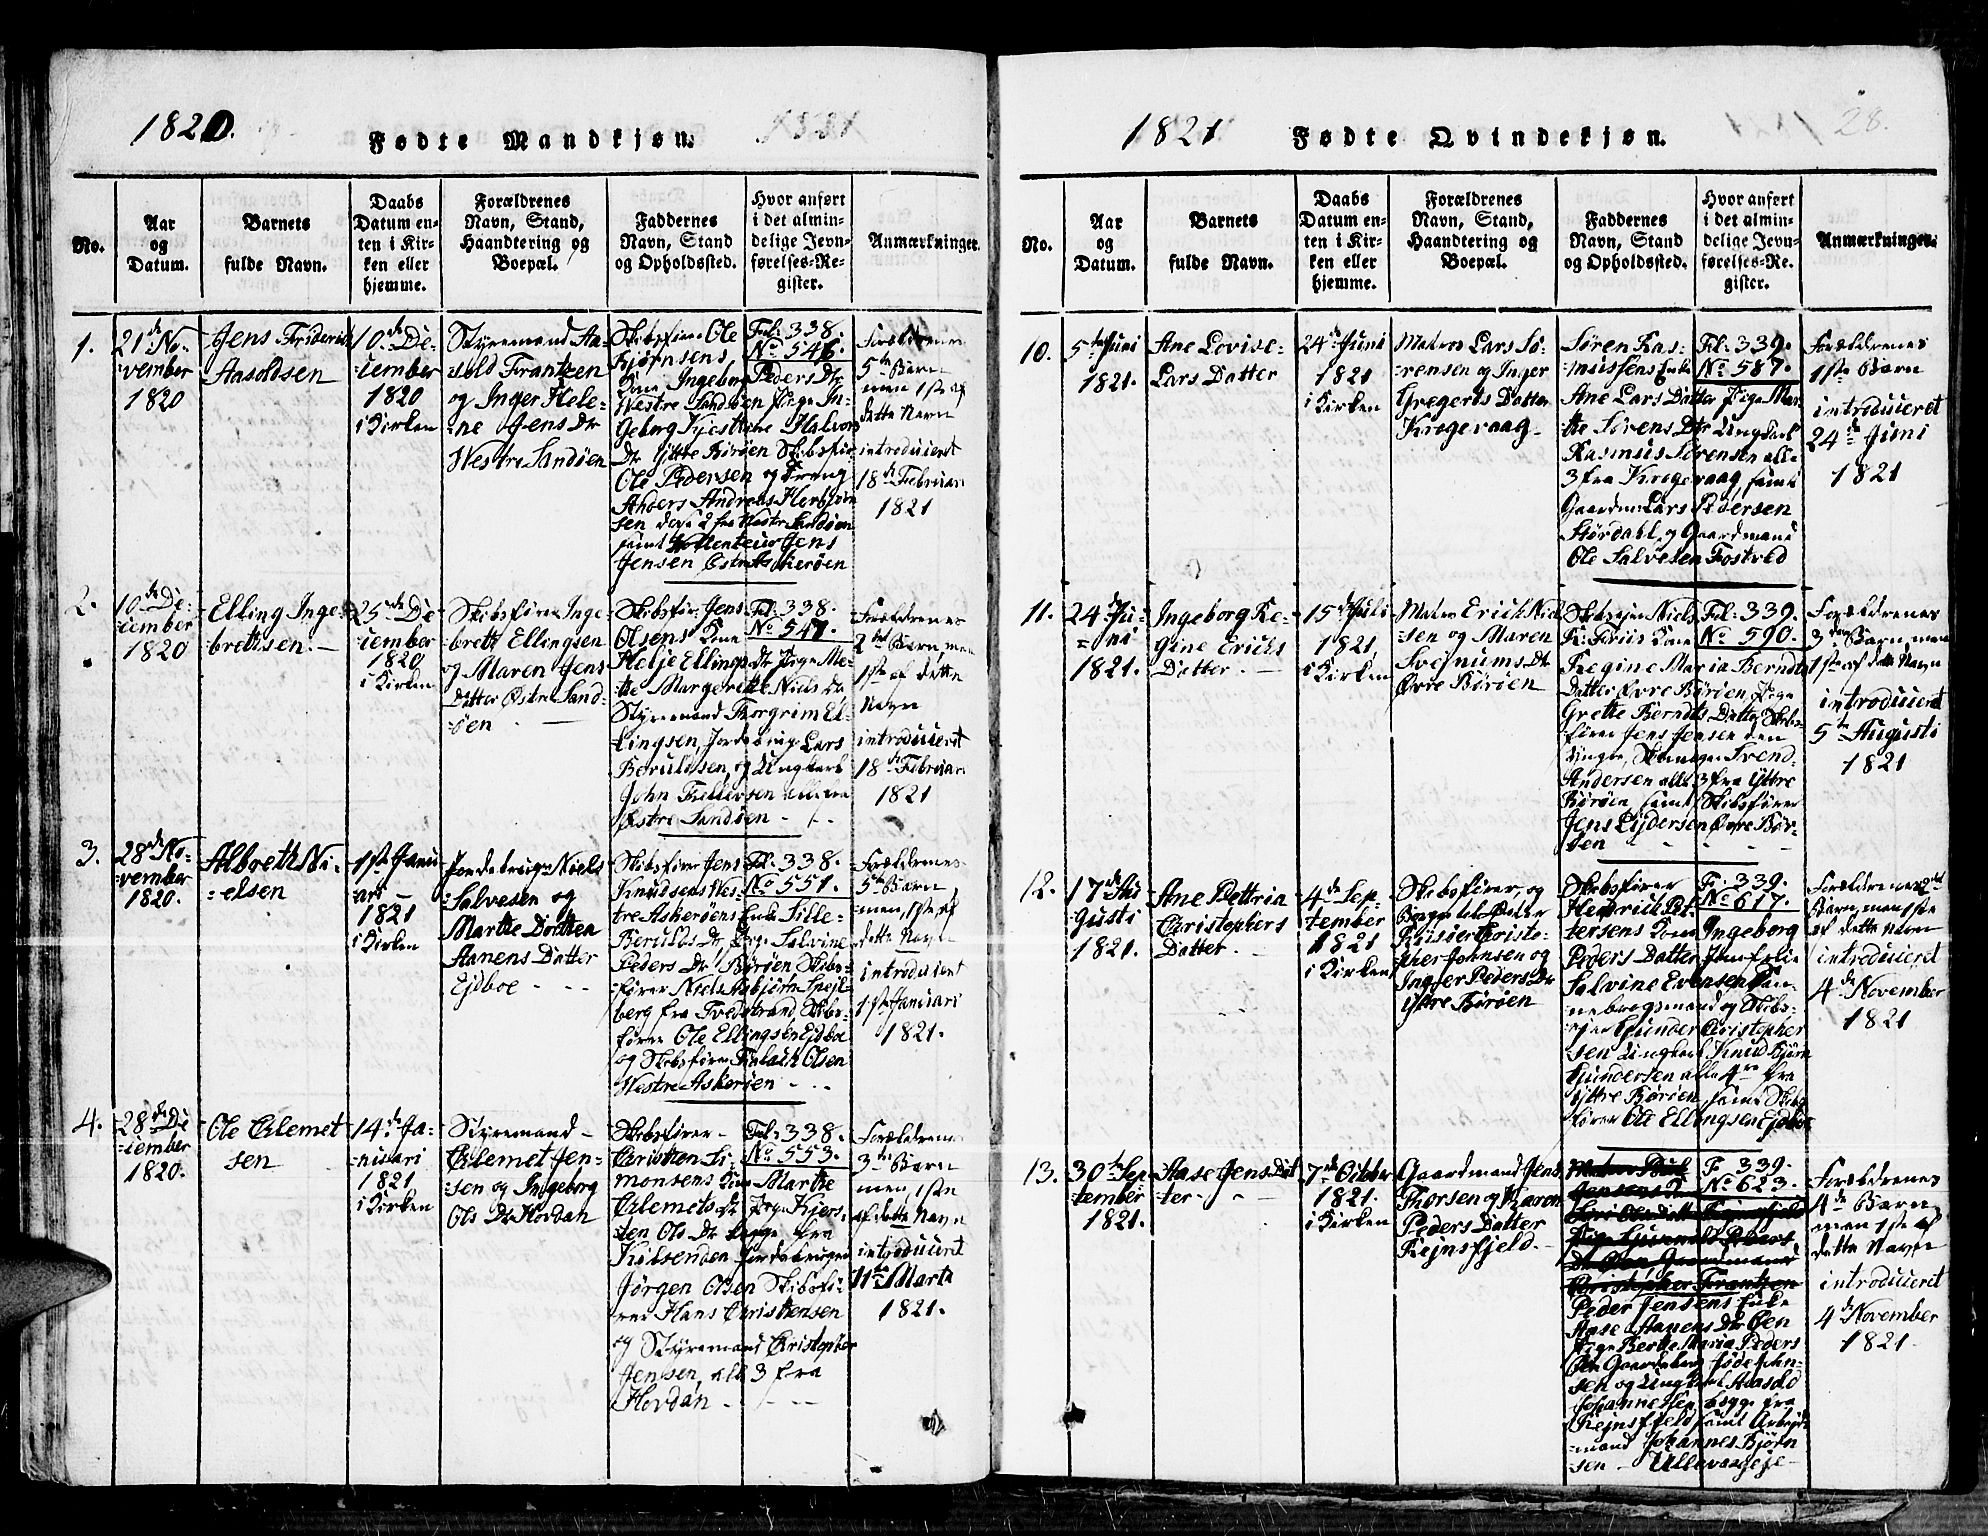 1820.
Fødte Mandkjøn.
1821
No.
Aar
og
Datum.
Barnets
fulde Navn.
Daabs
Datum en-
ten i Kir-
ken eller
hjemme.
Forældrenes
Navn, Stand,
Haandtering og
Boepæl.
Faddernes
Navn, Stand
og Opholdssted.
Hvor anført
i det almin-
delige Jevn-
førelses-Re-
gister.
Anmærkninger.
1.
21de No-
vember
1820
Jens Friderich
Aasoldsen
10de De-
cember
1820
i Kirken
Styremand Aa-
sold Frantzen
og Inger Hele-
ne Jens Dtr
Westre Sandøen
Skibsfører Ole
Bjørnsens
Kone Ingeborg Peders Dtr
Westre Sandøen Pige In-
geborg Halvors
Dtr Yttre Børøen Skibsfør
Ole Pedersen og Dreng
Anders Andreas Herbjørn
sen begge 2 fra Westre Sandøen
samt Jens
Jensen Østre Askerøen
Fol: 338.
No 546.
Forældrenes
5te Barn
men 1ste af
dette Navn
introduceret
18de Februari
1821
2.
10de De-
cember
1820
Elling Inge-
brettsen.
25de De-
cember
1820
i Kirken
Skibsfører Inge-
brett Ellingsen
og Maren Jens
Datter Østre Sand-
øen
Skibsfør: Jens
Olsens Kone
Helje Ellings Dtr Pige Me-
tte Margrette Niels Da
Styremand Thorgrim El-
lingsen, Jordebrug Lars
Beruldsen, og Ungkarl
John Tellevsen alle fra
Østre Sandøen
Fol: 338.
No 547.
Forældrenes
2det Barn, men
1ste af dette
Navn
introduceret
18de Februari
1821
3.
28de No-
vember
1820.
Alboeth Ni-
elsen
1ste Janu
ari
1821
i Kirken
Jordebruger Niels
Salvesen og
Marthe Dorthea
Aanens Datter
Eidboe
Skibsfører Jens
Knudsens Wes-
tre Askerøens Enke Sille
Beruldsdtr Pige Salvine
Peders Dtr Børøen Skibs-
fører Niels Asbjørn Spejl-
berg fra Tvedstrand, Skibs-
fører Ole Ellingsen Eidboe
og Skibsfører Olsen
Westre Askerøen
Fol: 338.
No 551.
Forældrenes
5te Barn
men, 1ste af
dette Navn
introduceret
1ste Januari
1821.
4.
28de De
cember
1820.
Ole Clemet
sen
14de Ja-
nuari
1821
i Kirken
Styremand
Clemet Jen-
sen og Ingeborg
Ols Dtr Hovdan
Skibsfører
Christen Si-
monsens Kone Marthe
Clemets Dtr Pige Kjers-
ten Ols Dtr begge fra
Jordebruger
Jørgen Olsen Skibsfø-
rer Hans Christensen
og Styremand Christopher
Jensen, alle 3 fra
Hovdan
Fol: 338.
No 553.
Forældrenes
3die Barn
men, 1ste
af dette Navn
introduceret
11te Marti
1821.
1821
Fødte Qvindekjøn.
28.
No.
Aar
og
Datum.
Barnets
fulde Navn.
Daabs
Datum en-
ten i Kir-
ken eller
hjemme.
Forældrenes
Navn, Stand,
Haandtering og
Boepæl.
Faddernes
Navn, Stand
og Opholdssted.
Hvor anført
i det almin-
delige Jevn-
førelses-Re-
gister.
Anmærkninger.
10.
5te Juni
1821.
Ane Lovise
Lars Datter
24de Juni
1821
i Kirken
Matros Lars Sø-
rensen og Inger
Gregerts Datter
Krogevaag
Søren Ras-
mussens Enke
Ane Lars Datter Pige Mar-
the Sørens Dtr Ungkarl
Rasmus Sørensen alle
3 fra Krogevaag, samt
Gaardmand Lars Pedersen
Størdahl, og Gaardmand
Ole Salvesen Fostved
Fol: 339.
No 587.
Forældrenes
1ste Barn
introduceret
24de Juni
1821
11.
24de Ju-
ni
1821.
Ingeborg Re-
gine Erichs
Datter
15de Juli
1821
i Kirken
Matros Erich Niel
sen og Maren
Svejnums Dtr
Øvre Børøen
Skibsejer Niels
Fr: Friis Kone
Fregine Maria Berndts
Datter Øvre Børøen, Pige
Grethe Berndts Datter, Skibs-
fører Jens Jensen den
Yngre, Svend
Andersen alle 3 fra Yttre
Børøen, samt Skibsfører
Jens Pedersen Øvre Bør-
øen
Fol: 339.
No 590.
Forældrenes
3die Barn, men
1ste af dette Navn
introduceret
5te Augusti
1821
12.
17de Au
gusti
1821.
Ane Pettria
Christophers
Datter
4de Sep-
tember
1821
i Kirken
Skibsfører, og
Borger til Øster
Riisøer Christo-
pher Johnsen og
Inger Peders Dtr
Yttre Børøen
Skibsfører
Hendrich Pet-
tersens Kone Ingeborg
Peders Datter Jomfrue
Salvine Evensen Dan-
nebrogsmand og Skibs-
ejer Gunder Christopher
sen Ungkarl Knud Bjørn
Gundersen alle 4re fra
Yttre Børøen, samt Skibs-
fører Ole Ellingsen Ejdboe
Fol: 339.
No 617.
Forældrenes 2det
Barn, men 1ste
af dette Navn
introduceret
4de November
1821
13.
30te Sep
tember
1821.
Aase Jens Dat
ter
7de Octbr
1821.
i Kirken
Gaardmand Jens
Thorsen og Karen
Peders Datter
Rejnsfjeld.
Peder Jensens Enke
Aase Aanens Dtr
Pige Berthe Maria Peders
Gaardmand
sen og Ungkarl Aasold
Johannesen, begge fra
Rejnsfjeld, samt Arbejds
mand Johannes Bjørn
sen
F. 339.
No 623.
Forældrenes
4de Barn
men 1ste af
dette Navn
introduceret
4de November
1821